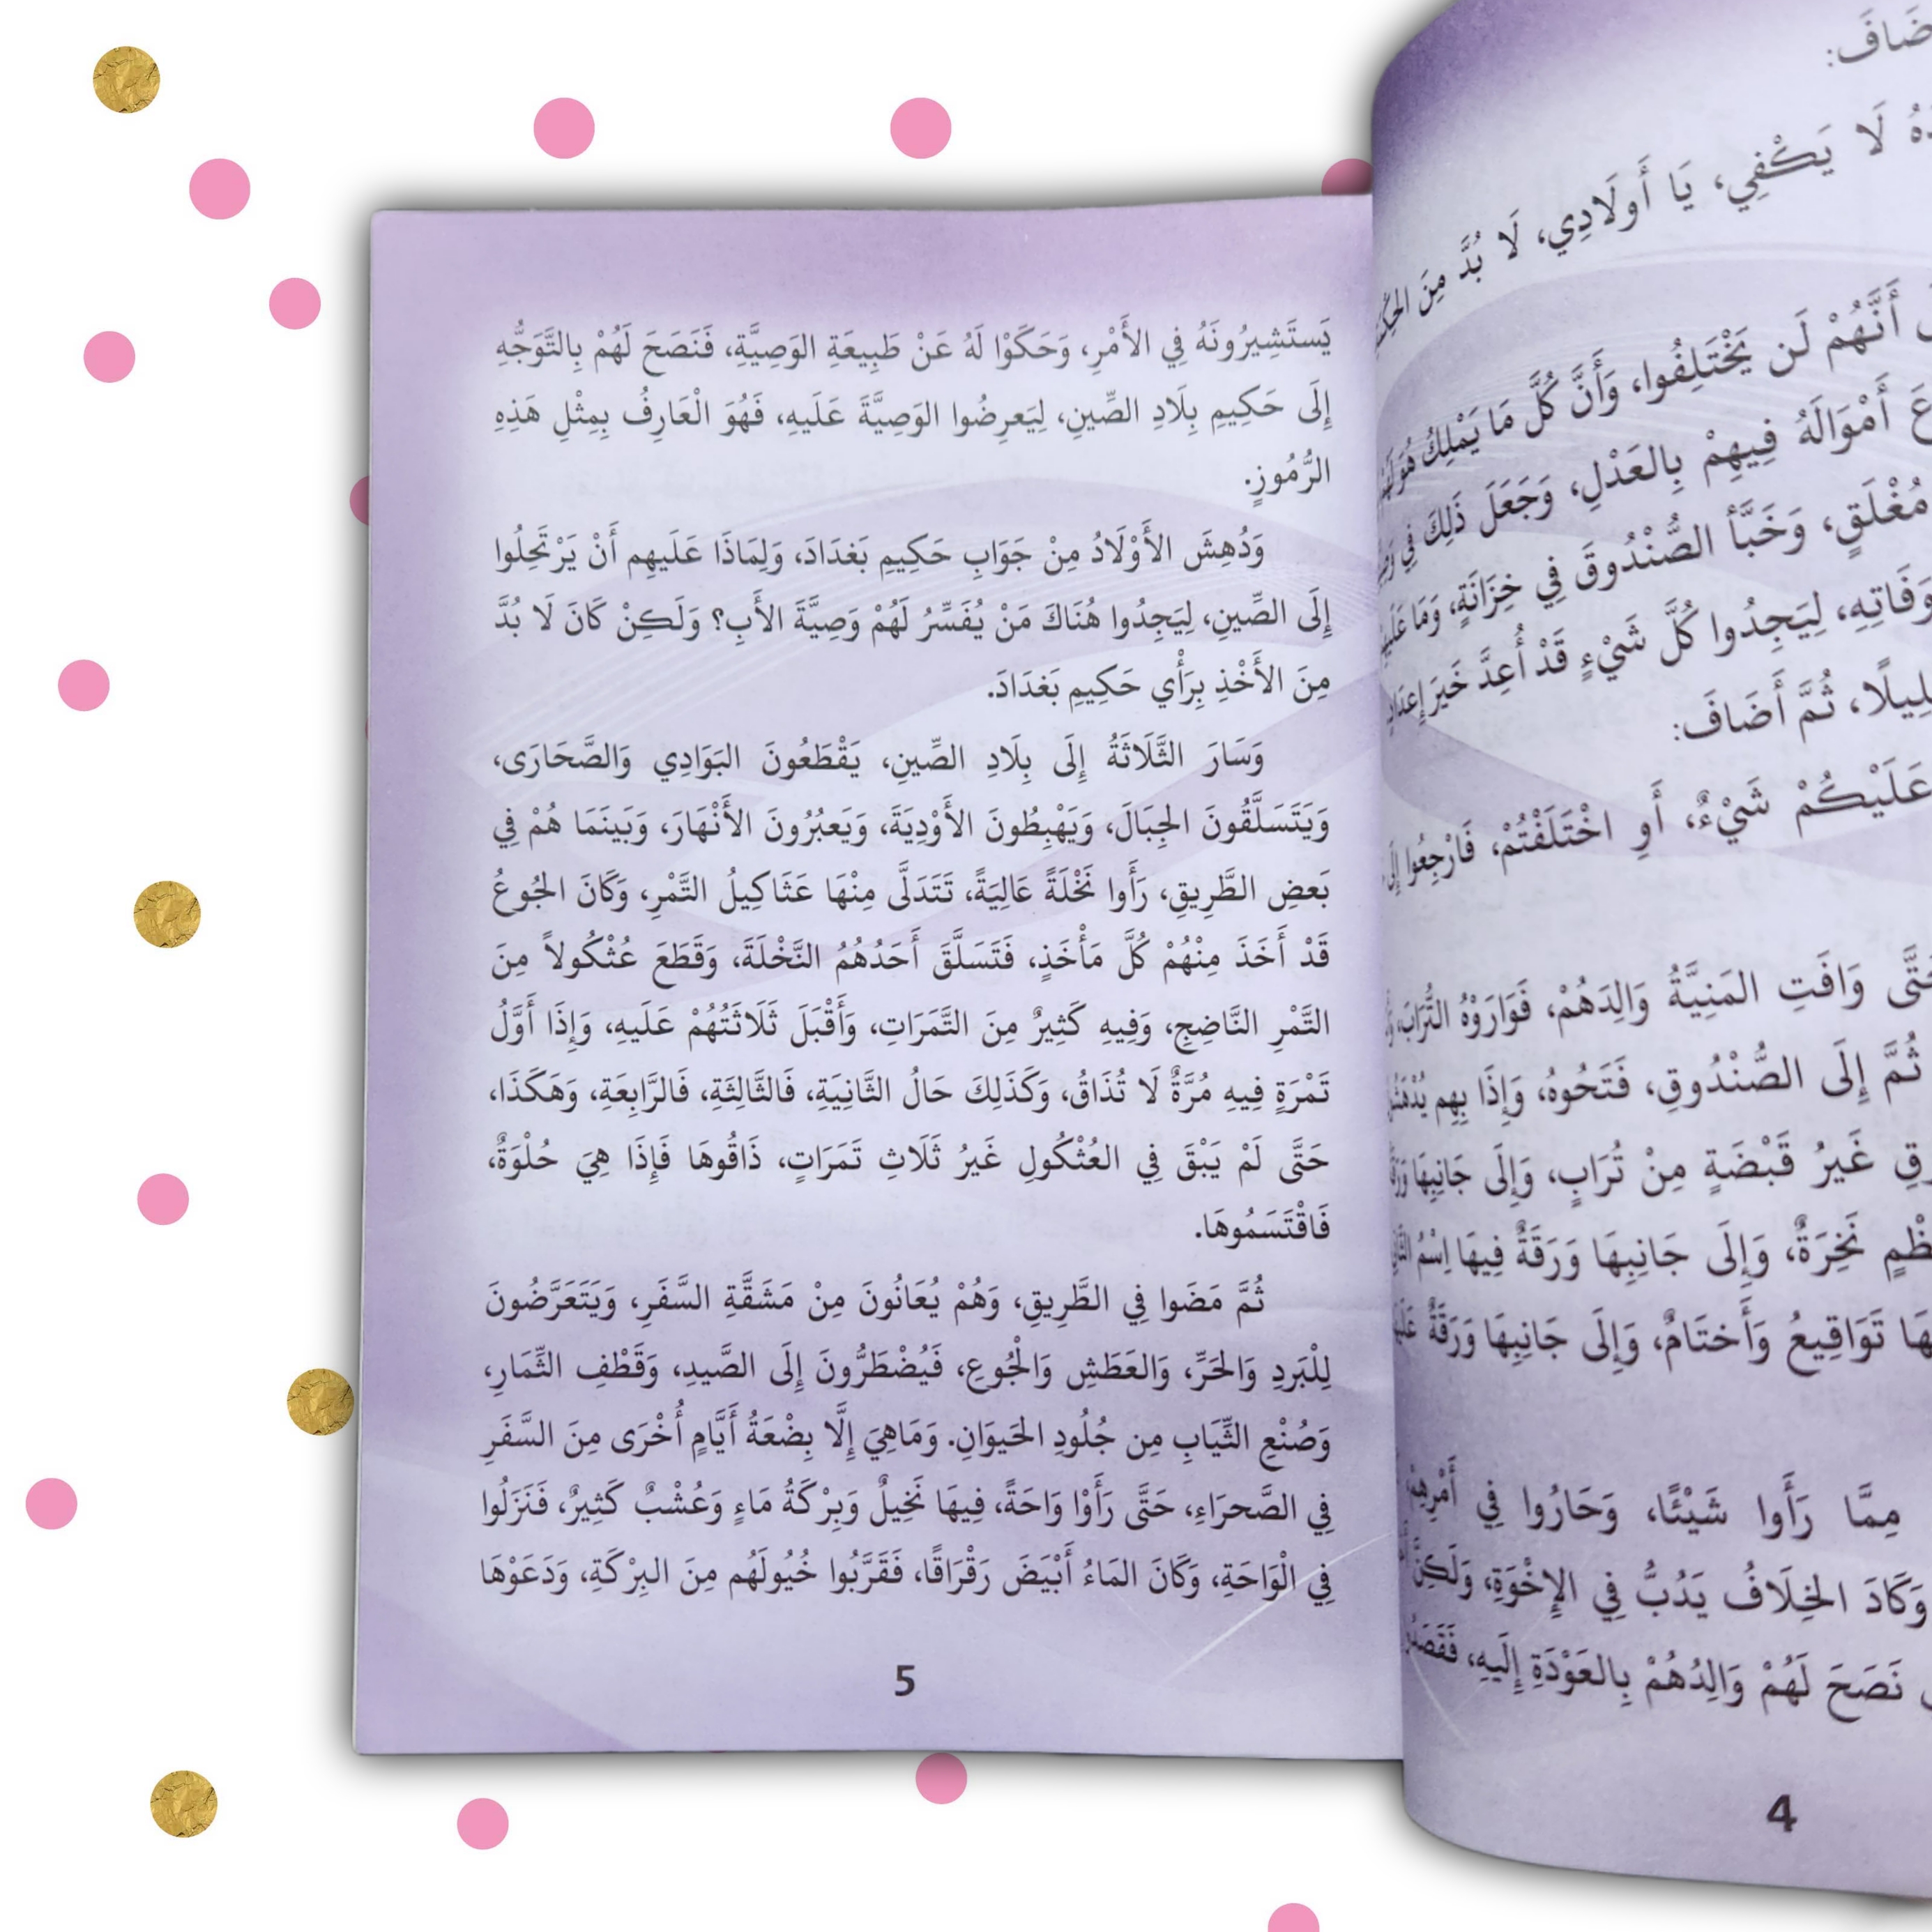 ضَافَ:
لَا يَكْفِي، يَا أَولَادِي، لَا بُدَّ مِنَ
أَنَّهُمْ لَن يَخْتَلِفُوا، وَأَنَّ كُلَّ مَا يَمْلِكُ هُوَ
أَمْوَالَهُ فِيهِمْ بِالعَدْلِ، وَجَعَلَ ذَلِكَ فِي
مُغْلَقٍ، وَخَبَّأَ الصُّنْدُوقَ فِي خِزَانَةٍ، وَمَا
وَفَاتِهِ، لِيَجِدُوا كُلَّ شَيْءٍ قَدْ أُعِدَّ خَيرَ إِعدَادٍ
لِيلًا، ثُمَّ أَضَافَ:
عَلَيْكُمْ شَيْءٌ، أَوِ اخْتَلَفْتُمْ، فَارْجِعُوا إِلَى
وَافَتِ المَنِيَّةُ وَالِدَهُمْ، فَوَارَوْهُ التُّرَابَ،
ثُمَّ إِلَى الصُّنْدُوقِ، فَتَحُوهُ، وَإِذَا بِهِم
غَيرُ قَبْضَةٍ مِنْ تُرَابٍ، وَإِلَى جَانِبِهَا
نَخِرَةٌ، وَإِلَى جَانِبِهَا وَرَقَةٌ فِيهَا اِسْمُ
تَوَاقِيعُ وَأَختَامٌ، وَإِلَى جَانِبِهَا وَرَقَةٌ
مِمَّا رَأَوا شَيْئًا، وَحَارُوا فِي أَمْرِهِمْ
وَكَادَ الخِلَافُ يَدُبُّ فِي الإِخْوَةِ، وَلَكِنَّ
نَصَحَ لَهُمْ وَالِدُهُمْ بِالعَوْدَةِ إِلَيهِ،
4
يَستَشِيرُونَهُ فِي الأَمْرِ، وَحَكَوْا لَهُ عَنْ طَبِيعَةِ الوَصِيَّةِ، فَنَصَحَ لَهُمْ بِالتَّوَجُّهِ
إِلَى حَكِيمِ بِلَادِ الصِّينِ، لِيَعرِضُوا الوَصِيَّةَ عَلَيهِ، فَهُوَ الْعَارِفُ بِمِثْلِ هَذِهِ
الرُّمُوزِ.
وَدُهِشَ الأَوْلَادُ مِنْ جَوَابِ حَكِيمِ بَغدَادَ، وَلِمَاذَا عَلَيهِم أَنْ يَرْتَحِلُوا
إِلَى الصِّينِ، لِيَجِدُوا هُنَاكَ مَنْ يُفَسِّرُ لَهُمْ وَصِيَّةَ الأَبِ؟ وَلَكِنْ كَانَ لَا بُدَّ
مِنَ الأَخْذِ بِرَأْي حَكِيمِ بَغدَادَ.
وَسَارَ الثَّلَاثَةُ إِلَى بِلَادِ الصِّينِ، يَقْطَعُونَ البَوَادِي وَالصَّحَارَى،
وَيَتَسَلَّقُونَ الجِبَالَ، وَيَهْبِطُونَ الأَوْدِيَةَ، وَيَعبُرُونَ الأَنْهَارَ، وَبَينَمَا هُمْ فِي
بَعضِ الطَّرِيقِ، رَأَوا نَخْلَةً عَالِيَةً، تَتَدَلَّى مِنْهَا عَثَاكِيلُ التَّمْرِ، وَكَانَ الجُوعُ
قَدْ أَخَذَ مِنْهُمْ كُلَّ مَأْخَذٍ، فَتَسَلَّقَ أَحَدُهُمُ النَّخْلَةَ، وَقَطَعَ عُثْكُولاً مِنَ
التَّمْرِ النَّاضِجِ، وَفِيهِ كَثِيرٌ مِنَ التَّمَرَاتِ، وَأَقْبَلَ ثَلَاثَتُهُمْ عَلَيهِ، وَإِذَا أَوَّلُ
تَمْرَةٍ فِيهِ مُرَّةٌ لَا تُذَاقُ، وَكَذَلِكَ حَالُ الثَّانِيَةِ، فَالثَّالِثَةِ، فَالرَّابِعَةِ، وَهَكَذَا،
حَتَّى لَمْ يَبْقَ فِي العُثْكُولِ غَيرُ ثَلَاثِ تَمَرَاتٍ، ذَاقُوهَا فَإِذَا هِيَ حُلْوَةٌ،
فَاقْتَسَمُوهَا.
ثُمَّ مَضَوا فِي الطَّرِيقِ، وَهُمْ يُعَانُونَ مِنْ مَشَقَّةِ السَّفَرِ، وَيَتَعَرَّضُونَ
لِلْبَردِ وَالحَرِّ، وَالعَطَشِ وَالْجُوعِ، فَيُضْطَرُّونَ إِلَى الصَّيدِ، وَقَطْفِ الثِّمَارِ،
وَصُنْعِ الثِّيَابِ مِن جُلُودِ الحَيوَانِ. وَمَاهِيَ إِلَّا بِضْعَةُ أَيَّامٍ أُخْرَى مِنَ السَّفَرِ
فِي الصَّحرَاءِ، حَتَّى رَأَوْا وَاحَةً، فِيهَا نَخِيلٌ وَبِرْكَةُ مَاءٍ وَعُشْبٌ كَثِيرٌ، فَنَزَلُوا
فِي الْوَاحَةِ، وَكَانَ المَاءُ أَبْيَضَ رَقْرَاقًا، فَقَرَّبُوا خُيُولَهُم مِنَ البِرْكَةِ، وَدَعَوْهَا
5